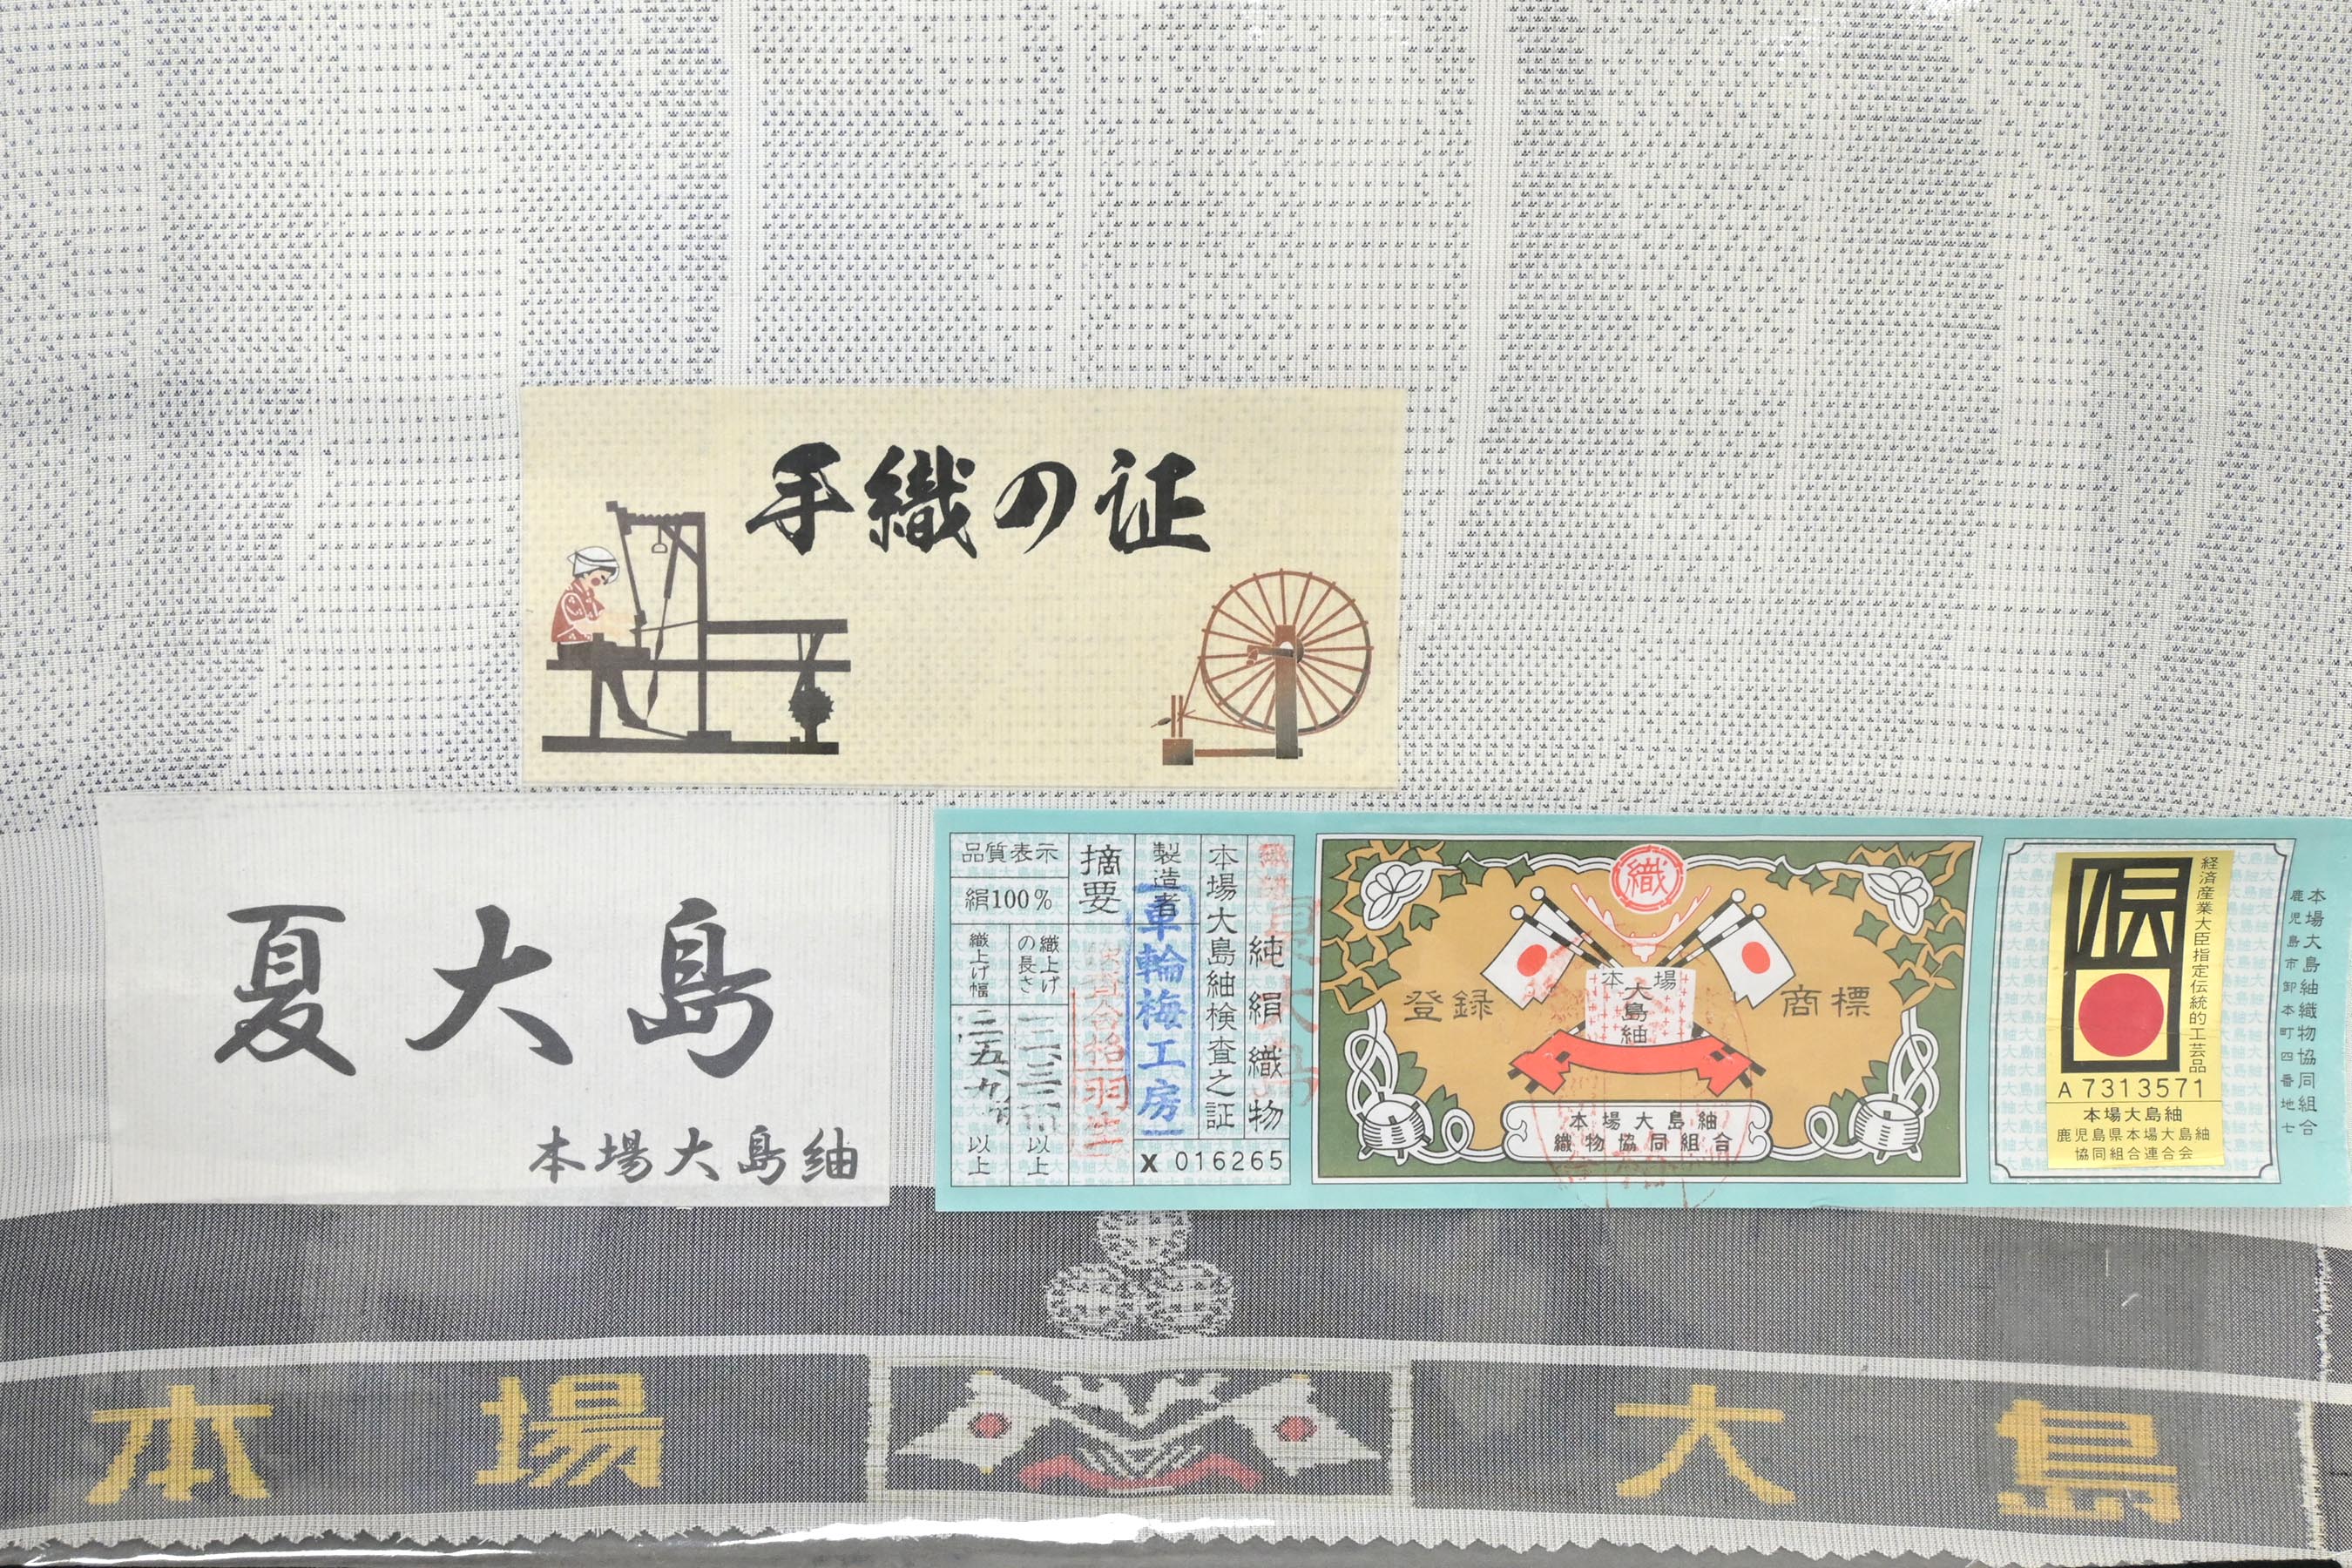 手織の证
夏大島
本場大島紬
品質表示
絹100%
織上げ幅
以上
織上げ
の長さ
以上
摘要
製造者
車輪梅工房
本場大島紬検査之証
純絹織物
X 016265
織
登録
商標
本場
大島紬
本場大島紬
織物協同組合
伝
経済産業大臣指定伝統的工芸品
A 7313571
本場大島紬
鹿児島県本場大島紬
協同組合連合会
本場大島紬織物協同組合
鹿児島市卸本町四番地七
本場大島